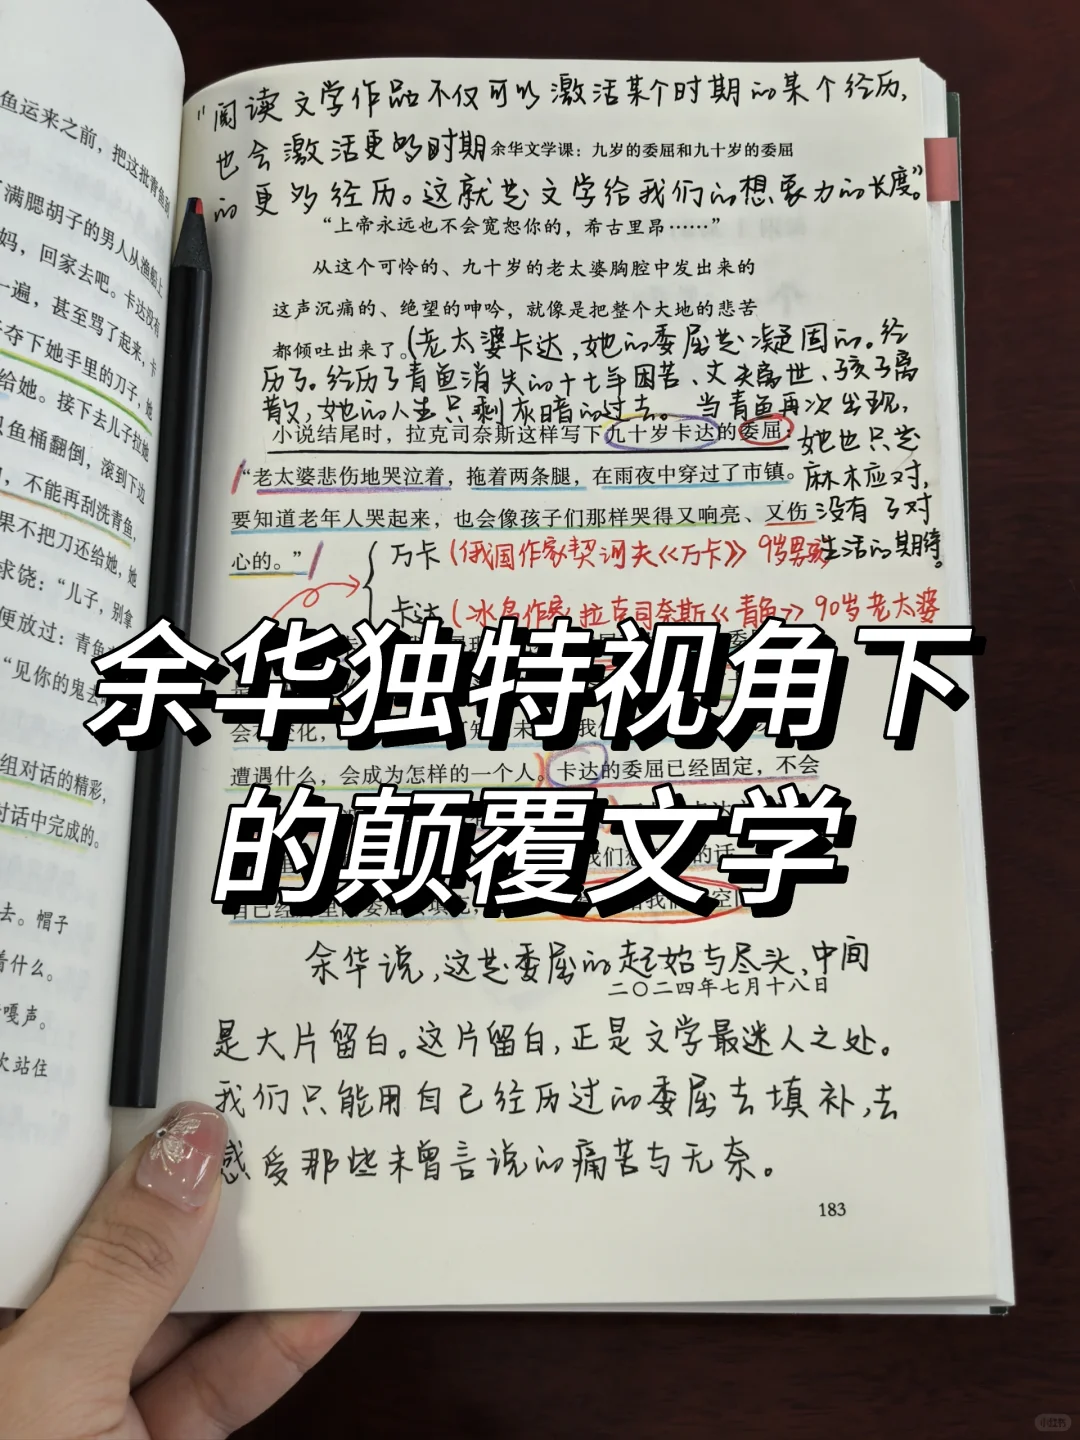 鱼运来之前，把这批青鱼刮
满腮胡子的男人从渔船上
妈，回家去吧。卡达没有
一遍，甚至骂了起来，卡
夺下她手里的刀子，她
给她。接下去儿子拉她
鱼桶翻倒，滚到下边
，不能再刮洗青鱼，
果不把刀还给她，她
求饶：“儿子，别拿
便放过：青鱼
“见你的鬼去
组对话的精彩，
对话中完成的。
去。帽子
着什么。
嘎声。
次站住
“阅读文学作品不仅可以激活某个时期的某个经历，
也会激活更多时期
余华文学课：九岁的委屈和九十岁的委屈
的更多经历。这就是文学给我们的想象力的长度。”
“上帝永远也不会宽恕你的，希古里昂……”
从这个可怜的、九十岁的老太婆胸腔中发出来的
这声沉痛的、绝望的呻吟，就像是把整个大地的悲苦
都倾吐出来了。
(老太婆卡达，她的委屈是凝固的。经
历了。经历了青鱼消失的十七年困苦、丈夫离世、孩子离
散，她的人生只剩灰暗的过去。当青鱼再次出现，
她也只是
麻木应对，
没有了对
生活的期待。
小说结尾时，拉克司奈斯这样写下九十岁卡达的委屈：
“老太婆悲伤地哭泣着，拖着两条腿，在雨夜中穿过了市镇。
要知道老年人哭起来，也会像孩子们那样哭得又响亮、又伤
心的。”
万卡（俄国作家契诃夫《万卡》9岁男孩
卡达（冰岛作家拉克司奈斯《青鱼》90岁老太婆
余华独特视角下
的颠覆文学
遭遇什么，会成为怎样的一个人。卡达的委屈已经固定，不会
余华说，这是委屈的起始与尽头，中间
二〇二四年七月十八日
是大片留白。这片留白，正是文学最迷人之处。
我们只能用自己经历过的委屈去填补，去
感受那些未曾言说的痛苦与无奈。
183
小红书